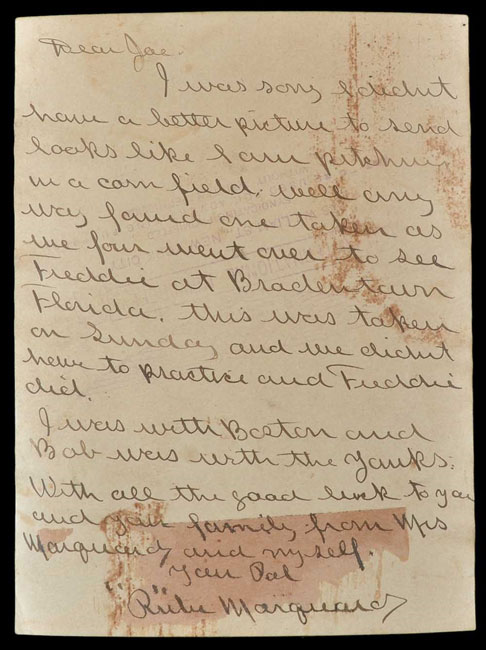 Dear Joe.
I was sorry I didn't
have a better picture to send
looks like I am pitching
in a corn field. well any
way found one taken as
we four went over to see
Freddie at Bradentown
Florida. this was taken
on Sunday and we didn't
have to practice and Freddie
did.
I was with Boston and
Bob was with the Yanks.
With all the good luck to you
and your family from Mrs
Marquard and myself.
Your Pal
Rube Marquard